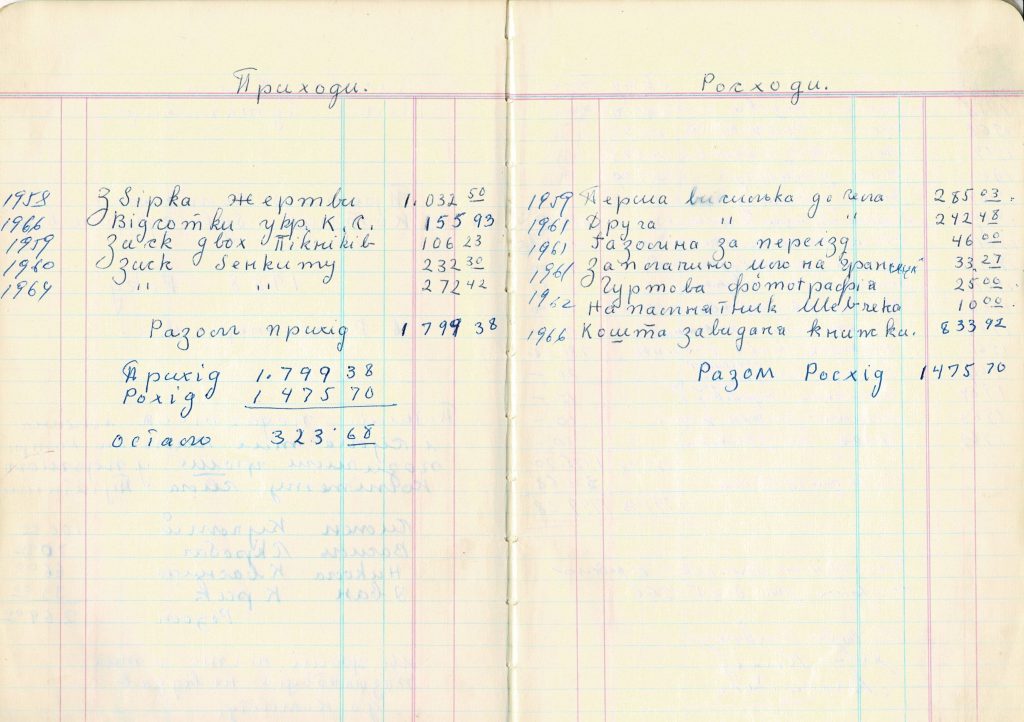 Приходи.
1958 Збірка жертви 1.032 50
1966 Відсотки укр. К. С. 155 93
1959 Заиск двох Пікніків 106 23
1960 Заиск бенкиту 232 30
1964 " " 272 42
Разом прихід 1 799 38
Прихід 1.799 38
Рохід 1 475 70
остало 323.68
Росходи.
1959 Перша висилька до села 285 03
1961 Друга " " 242 48
1961 Газоліна за переізд 46 00
1961 Заплачино мито на 33 27
Гуртова фотографіа 25 00
1962 На памнатник Шевчека 10 00
1966 Кошта завидана книжки. 833 92
Разом Росхід 1475 70